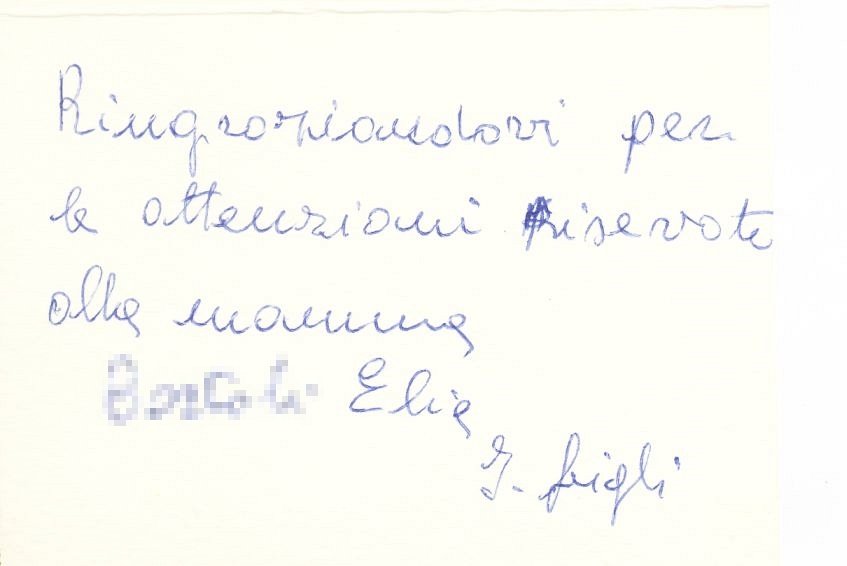 Ringraziandovi per
le attenzioni risevate
alla mamma
Elia
I figli